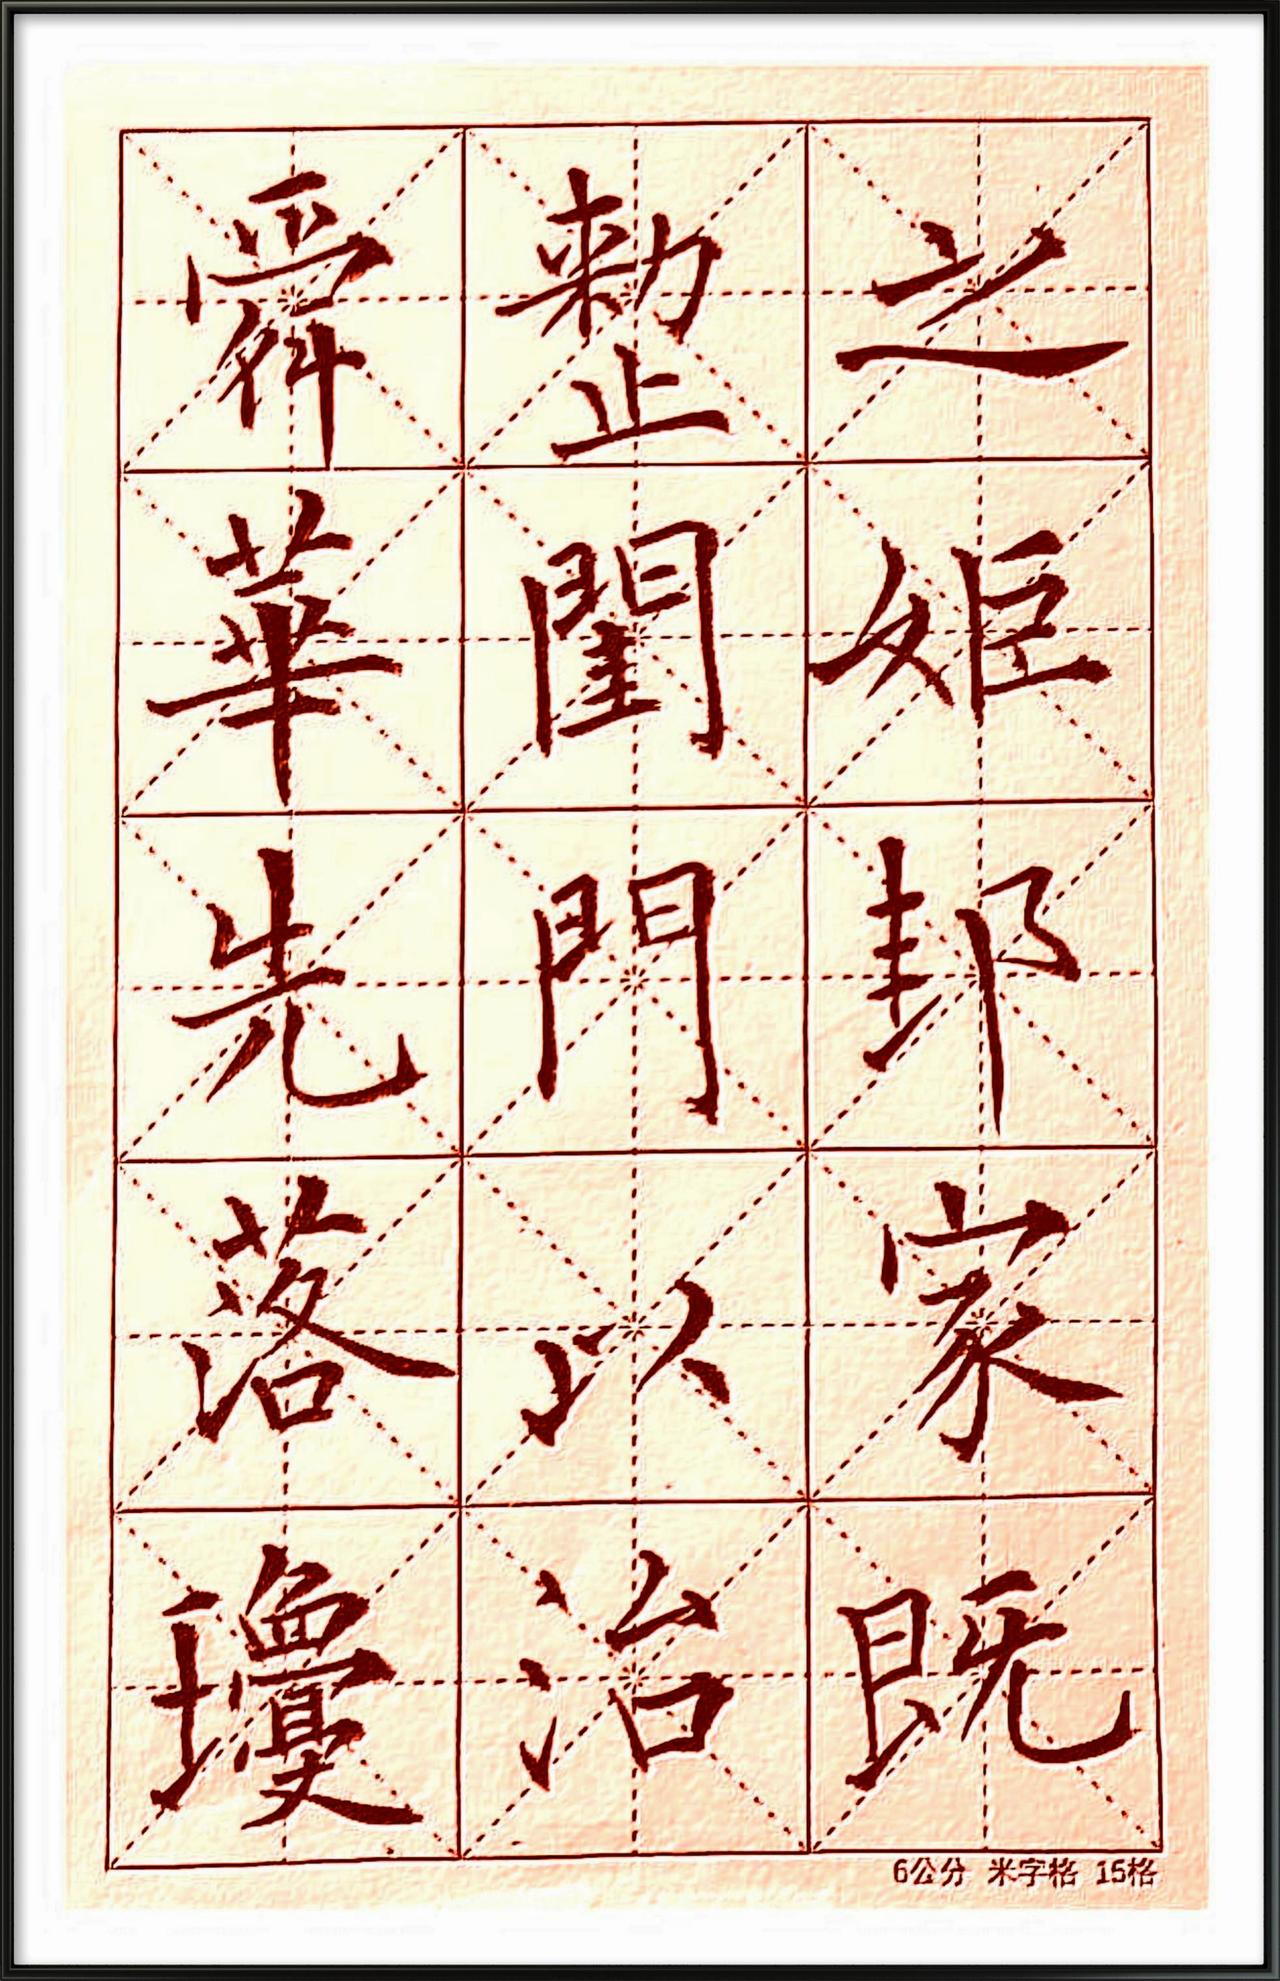 之姬邦家既
整閨門以治
舜華先落瓊
6公分 米字格 15格